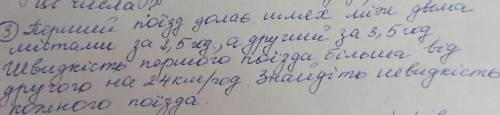 из числа?
③ Перший поїзд долає шлях між двома
містами за 2,5 год, а другий за 3,5 год
Швидкість першого поїзда більша від
другого на 24 км/год. Знайдіть швидкість
кожного поїзда.